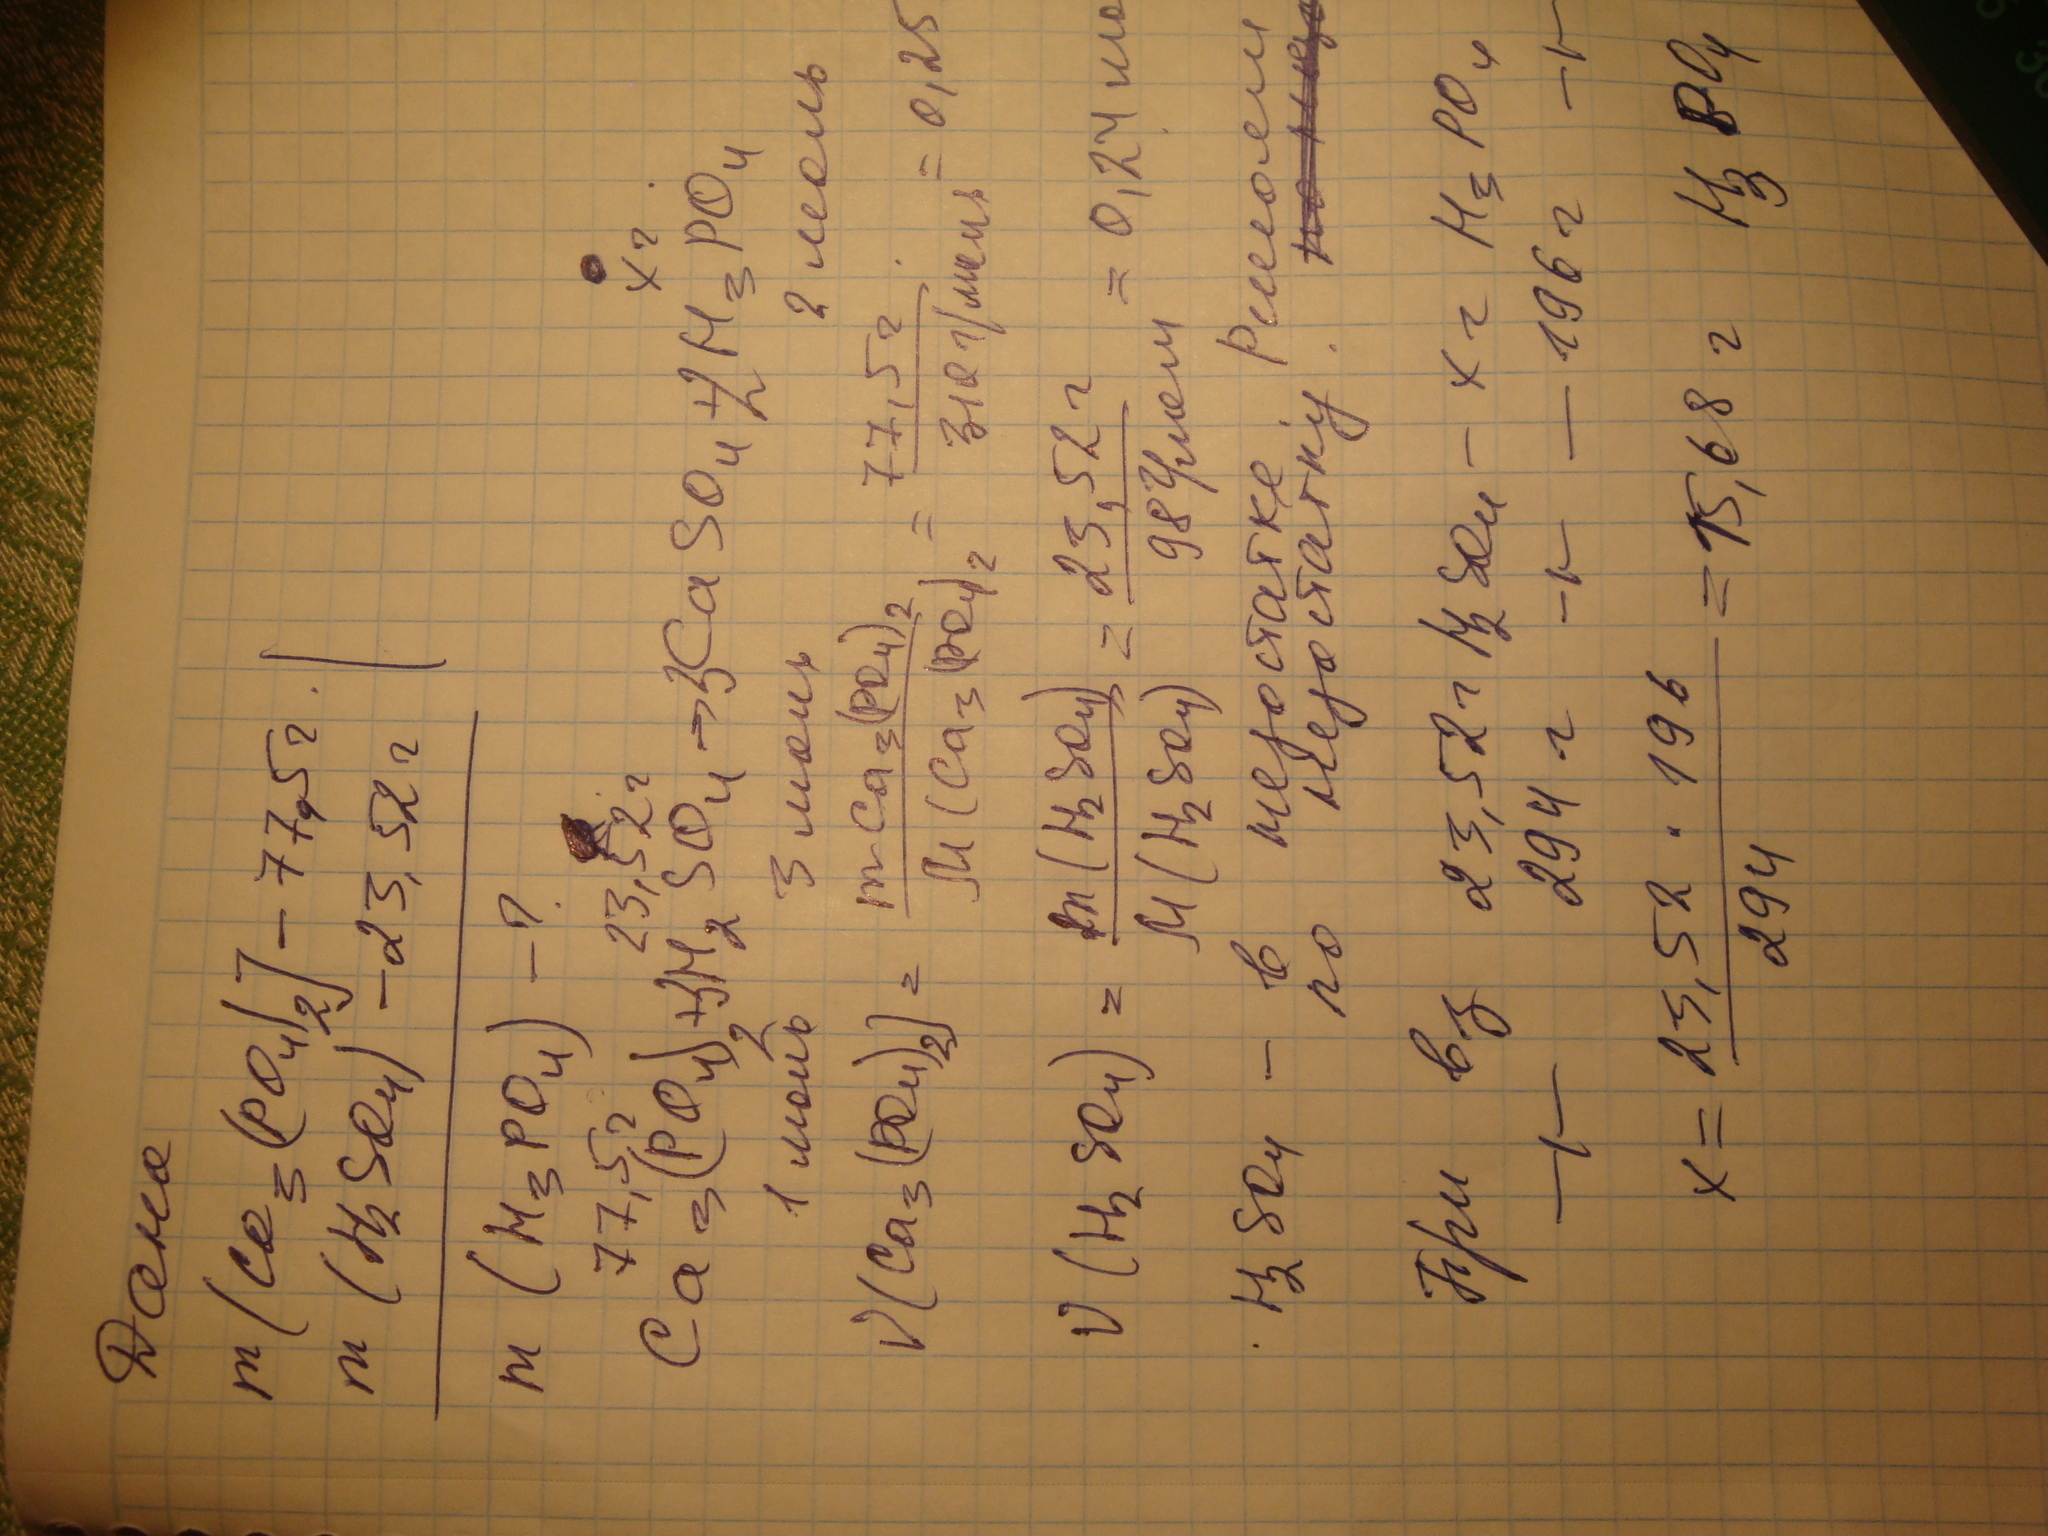 Дано
m [Ca₃(PO₄)₂] – 77,5 г.
m (H₂SO₄) – 23,52 г
m (H₃PO₄) – ?
77,5 г 23,52 г x г
Ca₃(PO₄)₂ + 3H₂SO₄ → 3CaSO₄ + 2H₃PO₄
1 моль 3 моль 2 моль
ν[Ca₃(PO₄)₂] = m Ca₃(PO₄)₂ / M(Ca₃(PO₄)₂ = 77,5 г / 310 г/моль = 0,25
ν (H₂SO₄) = m(H₂SO₄) / M(H₂SO₄) = 23,52 г / 98 г/мол = 0,24 мо
H₂SO₄ – в недостатке. Решаем
по недостатку.
При вз 23,52 г H₂SO₄ – x г H₃PO₄
–"– 294 г –"– – 196 г –"
x = 23,52 · 196 / 294 = 15,68 г H₃PO₄